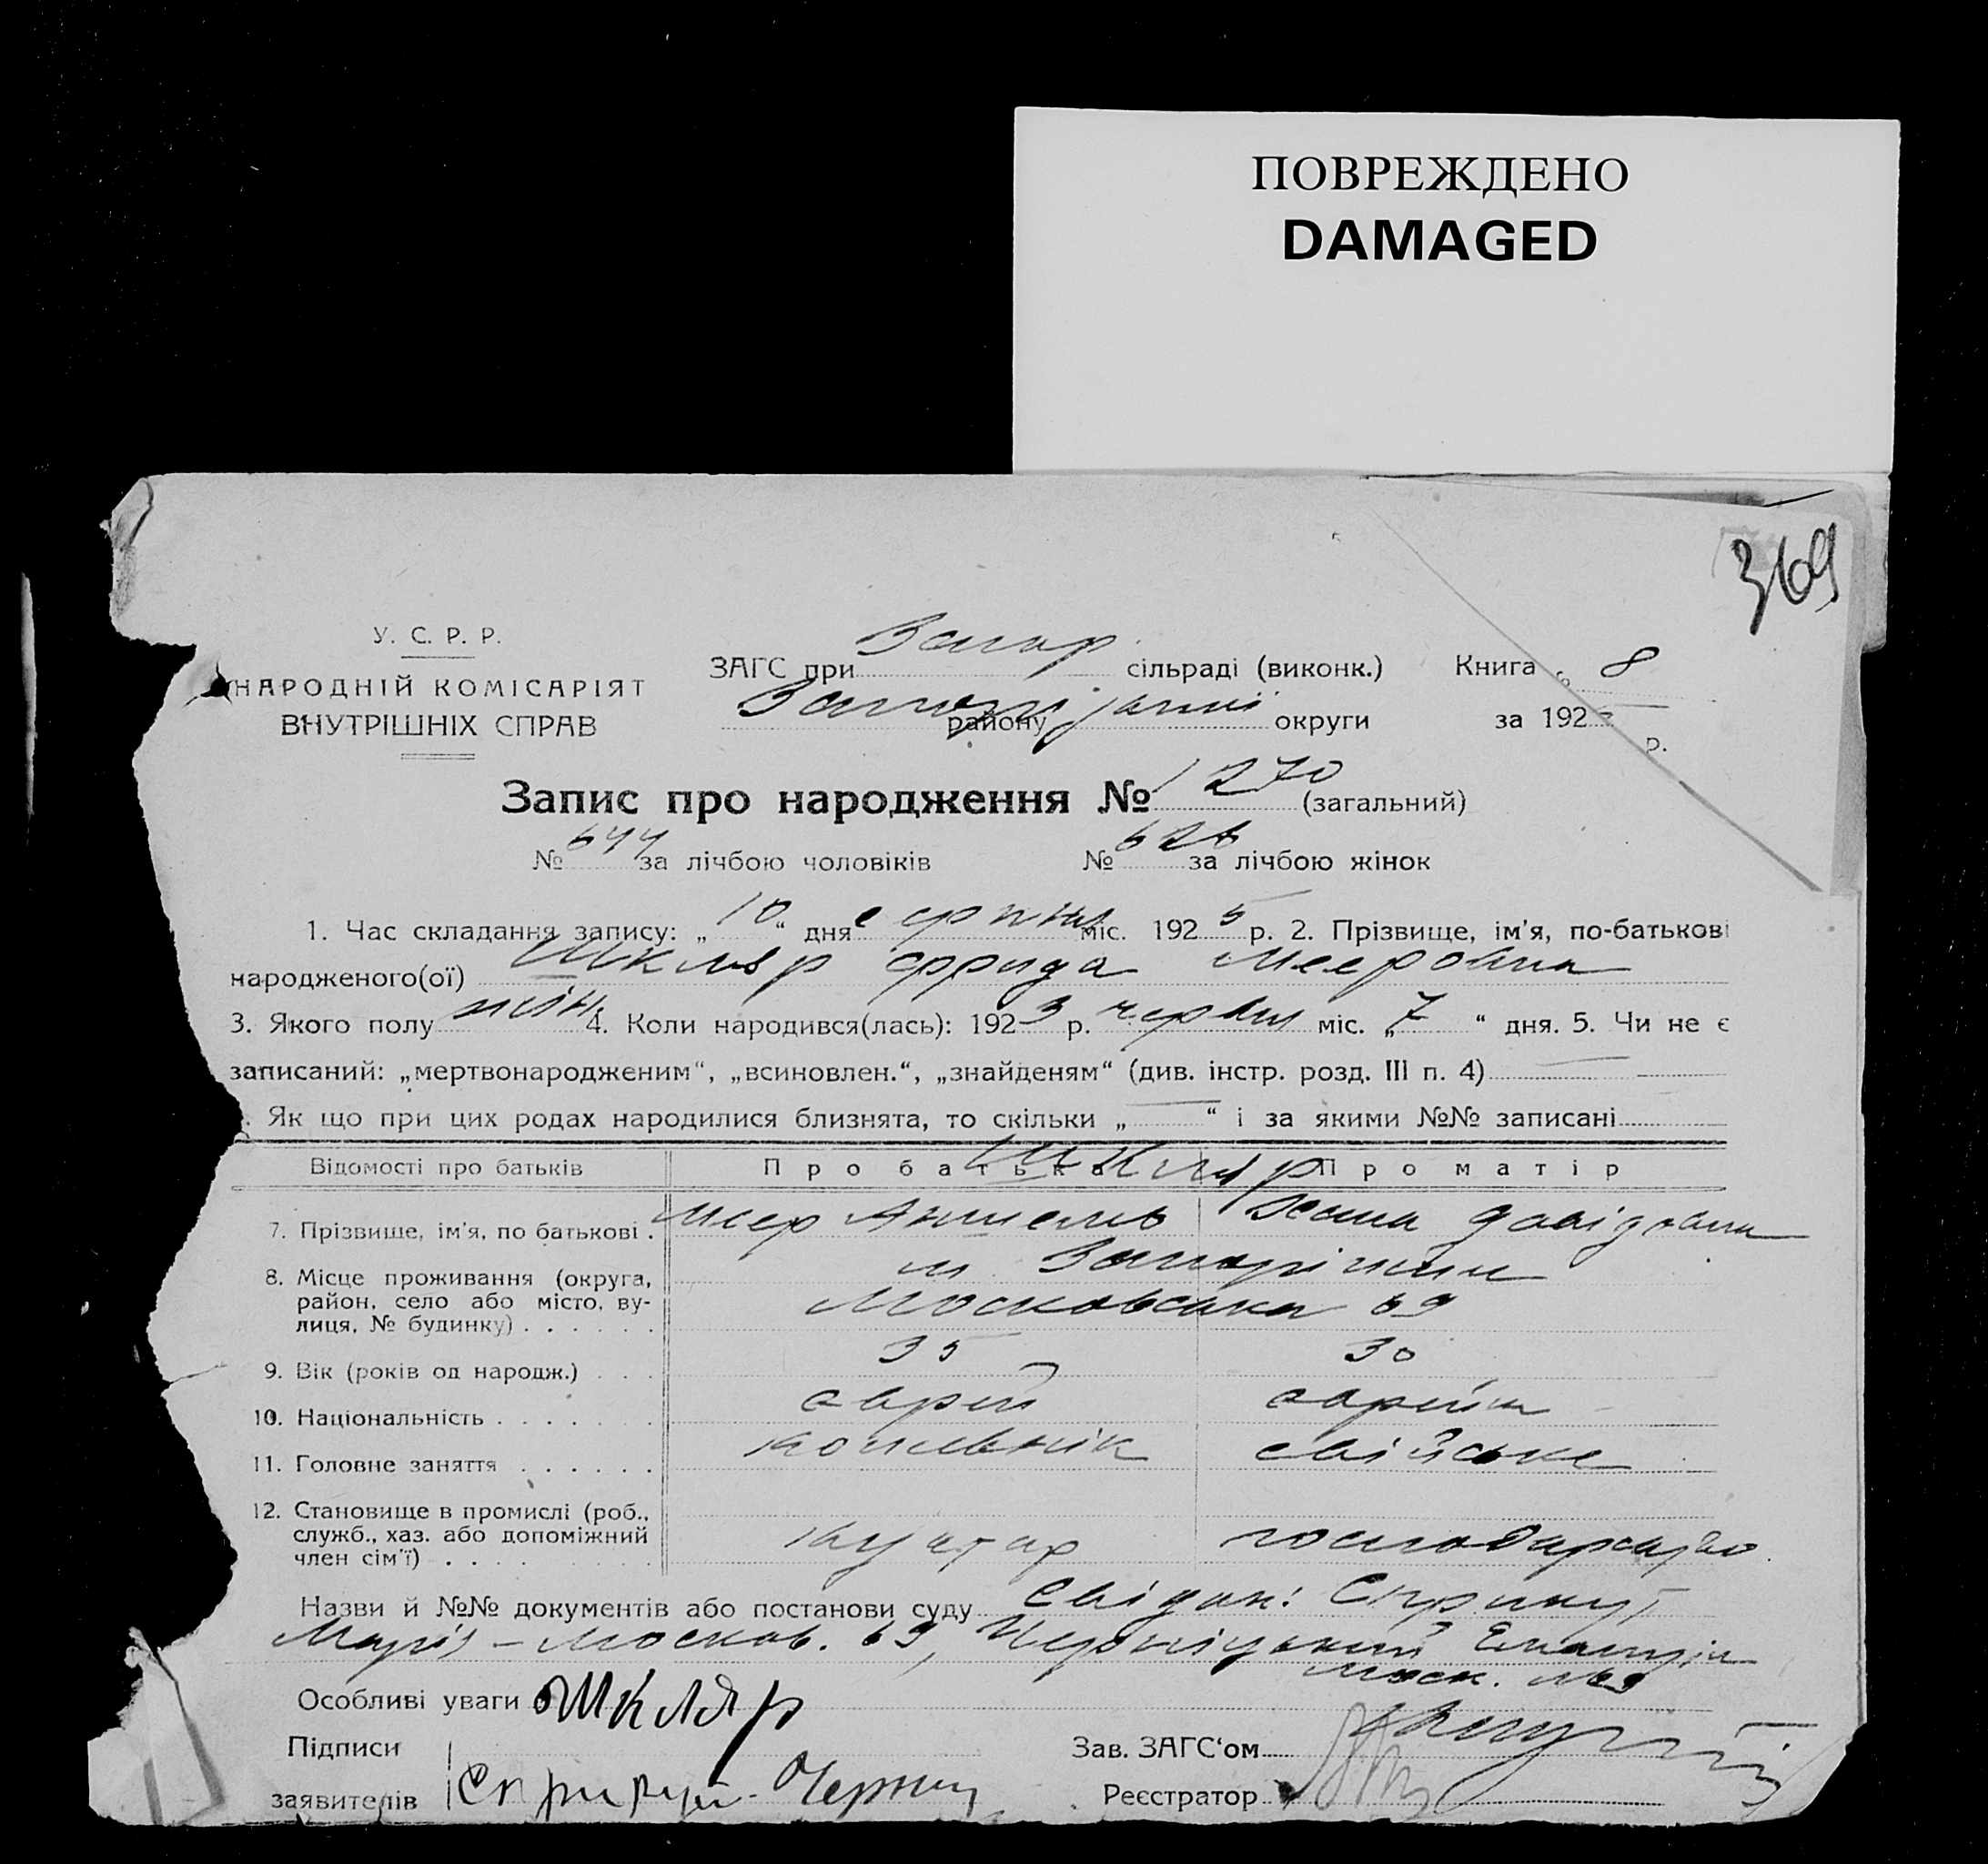 ПОВРЕЖДЕНО
DAMAGED
369
У. С. Р. Р.
НАРОДНІЙ КОМІСАРІЯТ
ВНУТРІШНІХ СПРАВ
ЗАГС при Запор. сільраді (виконк.) Книга 8
району округи за 192 р.
Запис про народження № 1270 (загальний)
№ 644 за лічбою чоловіків № 626 за лічбою жінок
1. Час складання запису: „10“ дня серпня міс. 1925 р. 2. Прізвище, ім'я, по-батькові
народженого(ої) Шкляр Фрида Мееровна
3. Якого полу жін. 4. Коли народився(лась): 1923 р. червня міс. „7“ дня. 5. Чи не є
записаний: „мертвонародженим“, „всиновлен.“, „знайденям“ (див. інстр. розд. III п. 4)
Як що при цих родах народилися близнята, то скільки „—“ і за якими №№ записані
Відомості про батьків Про батька Про матір
Шкляр
7. Прізвище, ім'я, по батькові . Меер Давідовна
8. Місце проживання (округа, район, село або місто, вулиця, № будинку) . . . . . . м. Запоріжжя
Московська 69
9. Вік (років од народж.) . . . 35 30
10. Національність . . . . . . . еврей еврейка
11. Головне заняття . . . . . . свійське
12. Становище в промислі (роб., служб., хаз. або допоміжний член сім'ї) . . . . кустар господарство
Назви й №№ документів або постанови суду Свідки:
Марія – Москов. 69,
Моск. №69
Особливі уваги Шкляр
Підписи
заявителів
Зав. ЗАГС'ом
Реєстратор